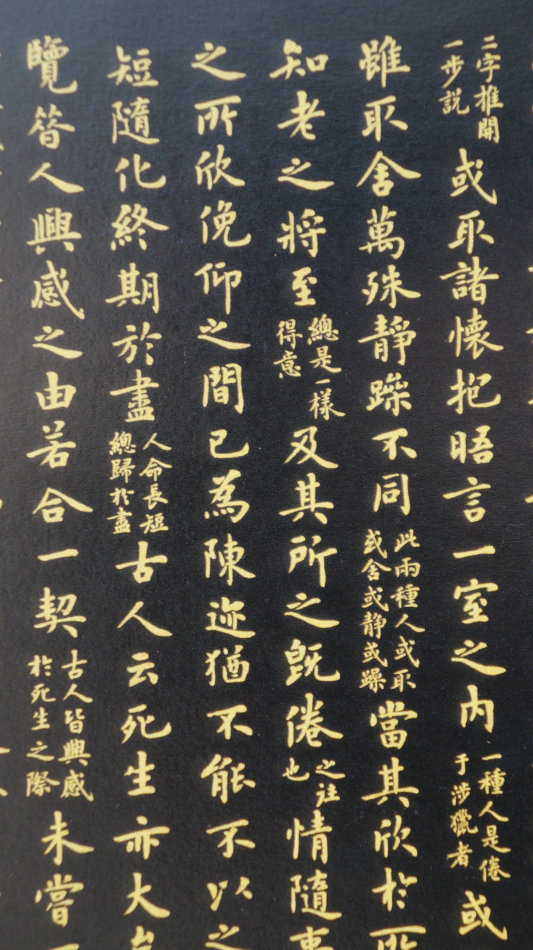 二字推開一步説或取諸懷抱晤言一室之内一種人是倦于涉獵者或
雖取舍萬殊靜躁不同此兩種人或取或舍或靜或躁當其欣於所
知老之將至總是一樣得意及其所之既倦之往也情隨事
之所欣俛仰之間已為陳迹猶不能不以之
短隨化終期於盡人命長短總歸於盡古人云死生亦大
覽昔人興感之由若合一契古人皆興感於死生之際未嘗